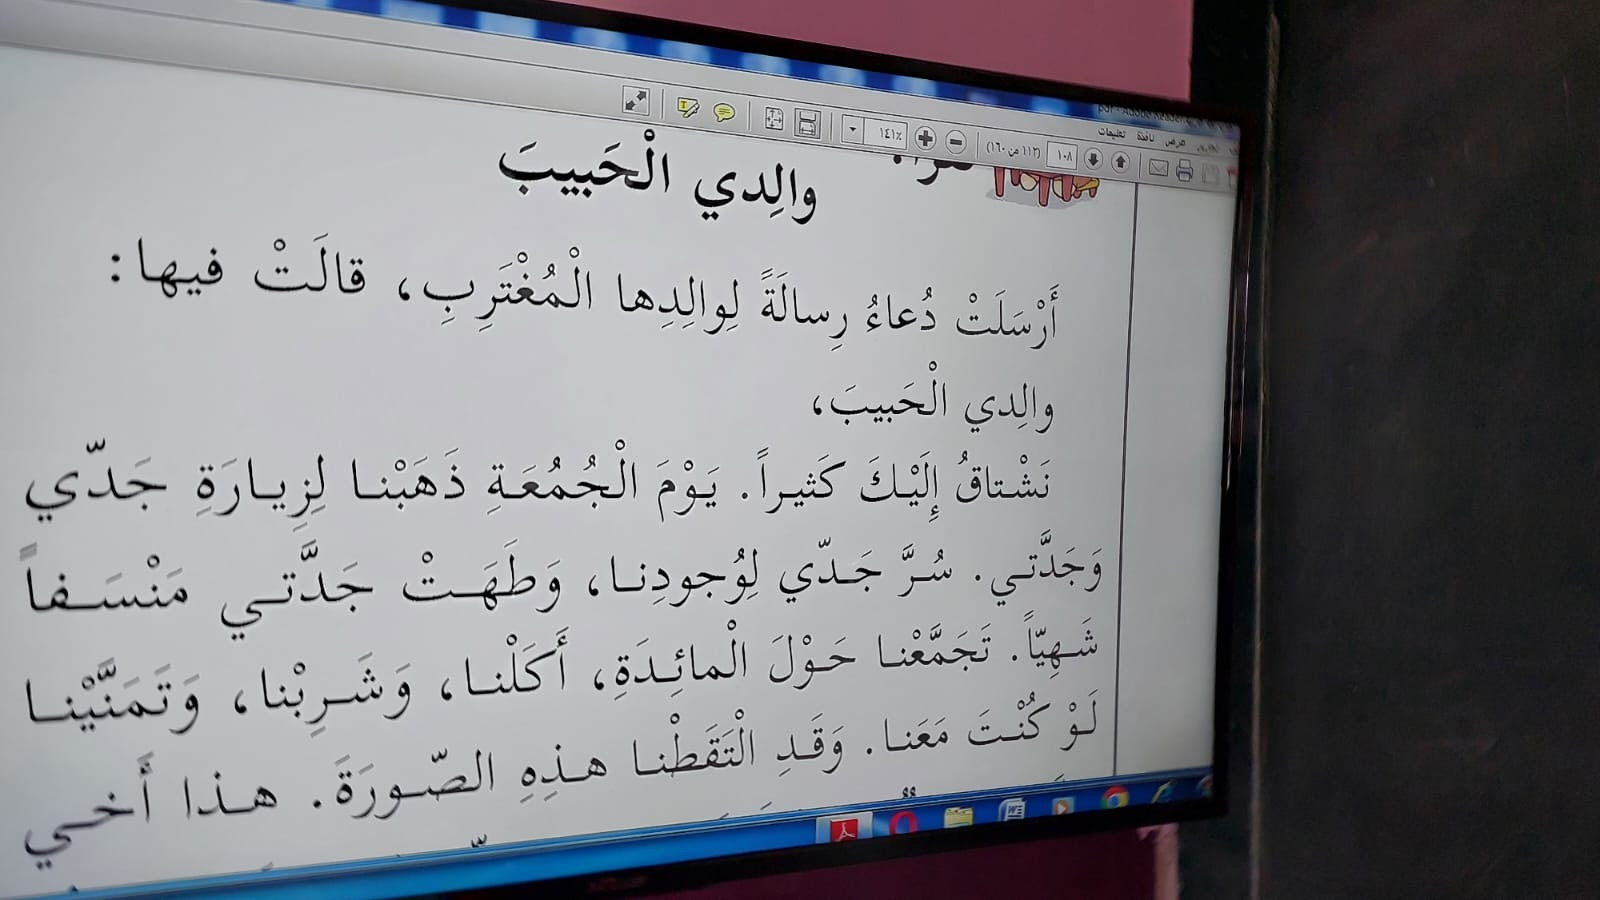 pdf - Adobe Reader
عرض نافذة تعليمات
١٠٨ (١١٣ من ١٦٠) ١٤١٪
والِدي الْحَبيبَ
أَرْسَلَتْ دُعاءُ رِسالَةً لِوالِدِها الْمُغْتَرِبِ، قالَتْ فيها:
والِدي الْحَبيبَ،
نَشْتاقُ إِلَيْكَ كَثيراً. يَوْمَ الْجُمُعَةِ ذَهَبْنا لِزِيارَةِ جَدّي
وَجَدَّتي. سُرَّ جَدّي لِوُجودِنا، وَطَهَتْ جَدَّتي مَنْسَفاً
شَهِيّاً. تَجَمَّعْنا حَوْلَ الْمائِدَةِ، أَكَلْنا، وَشَرِبْنا، وَتَمَنَّيْنا
لَوْ كُنْتَ مَعَنا. وَقَدِ الْتَقَطْنا هذِهِ الصّورَةَ. هذا أَخي